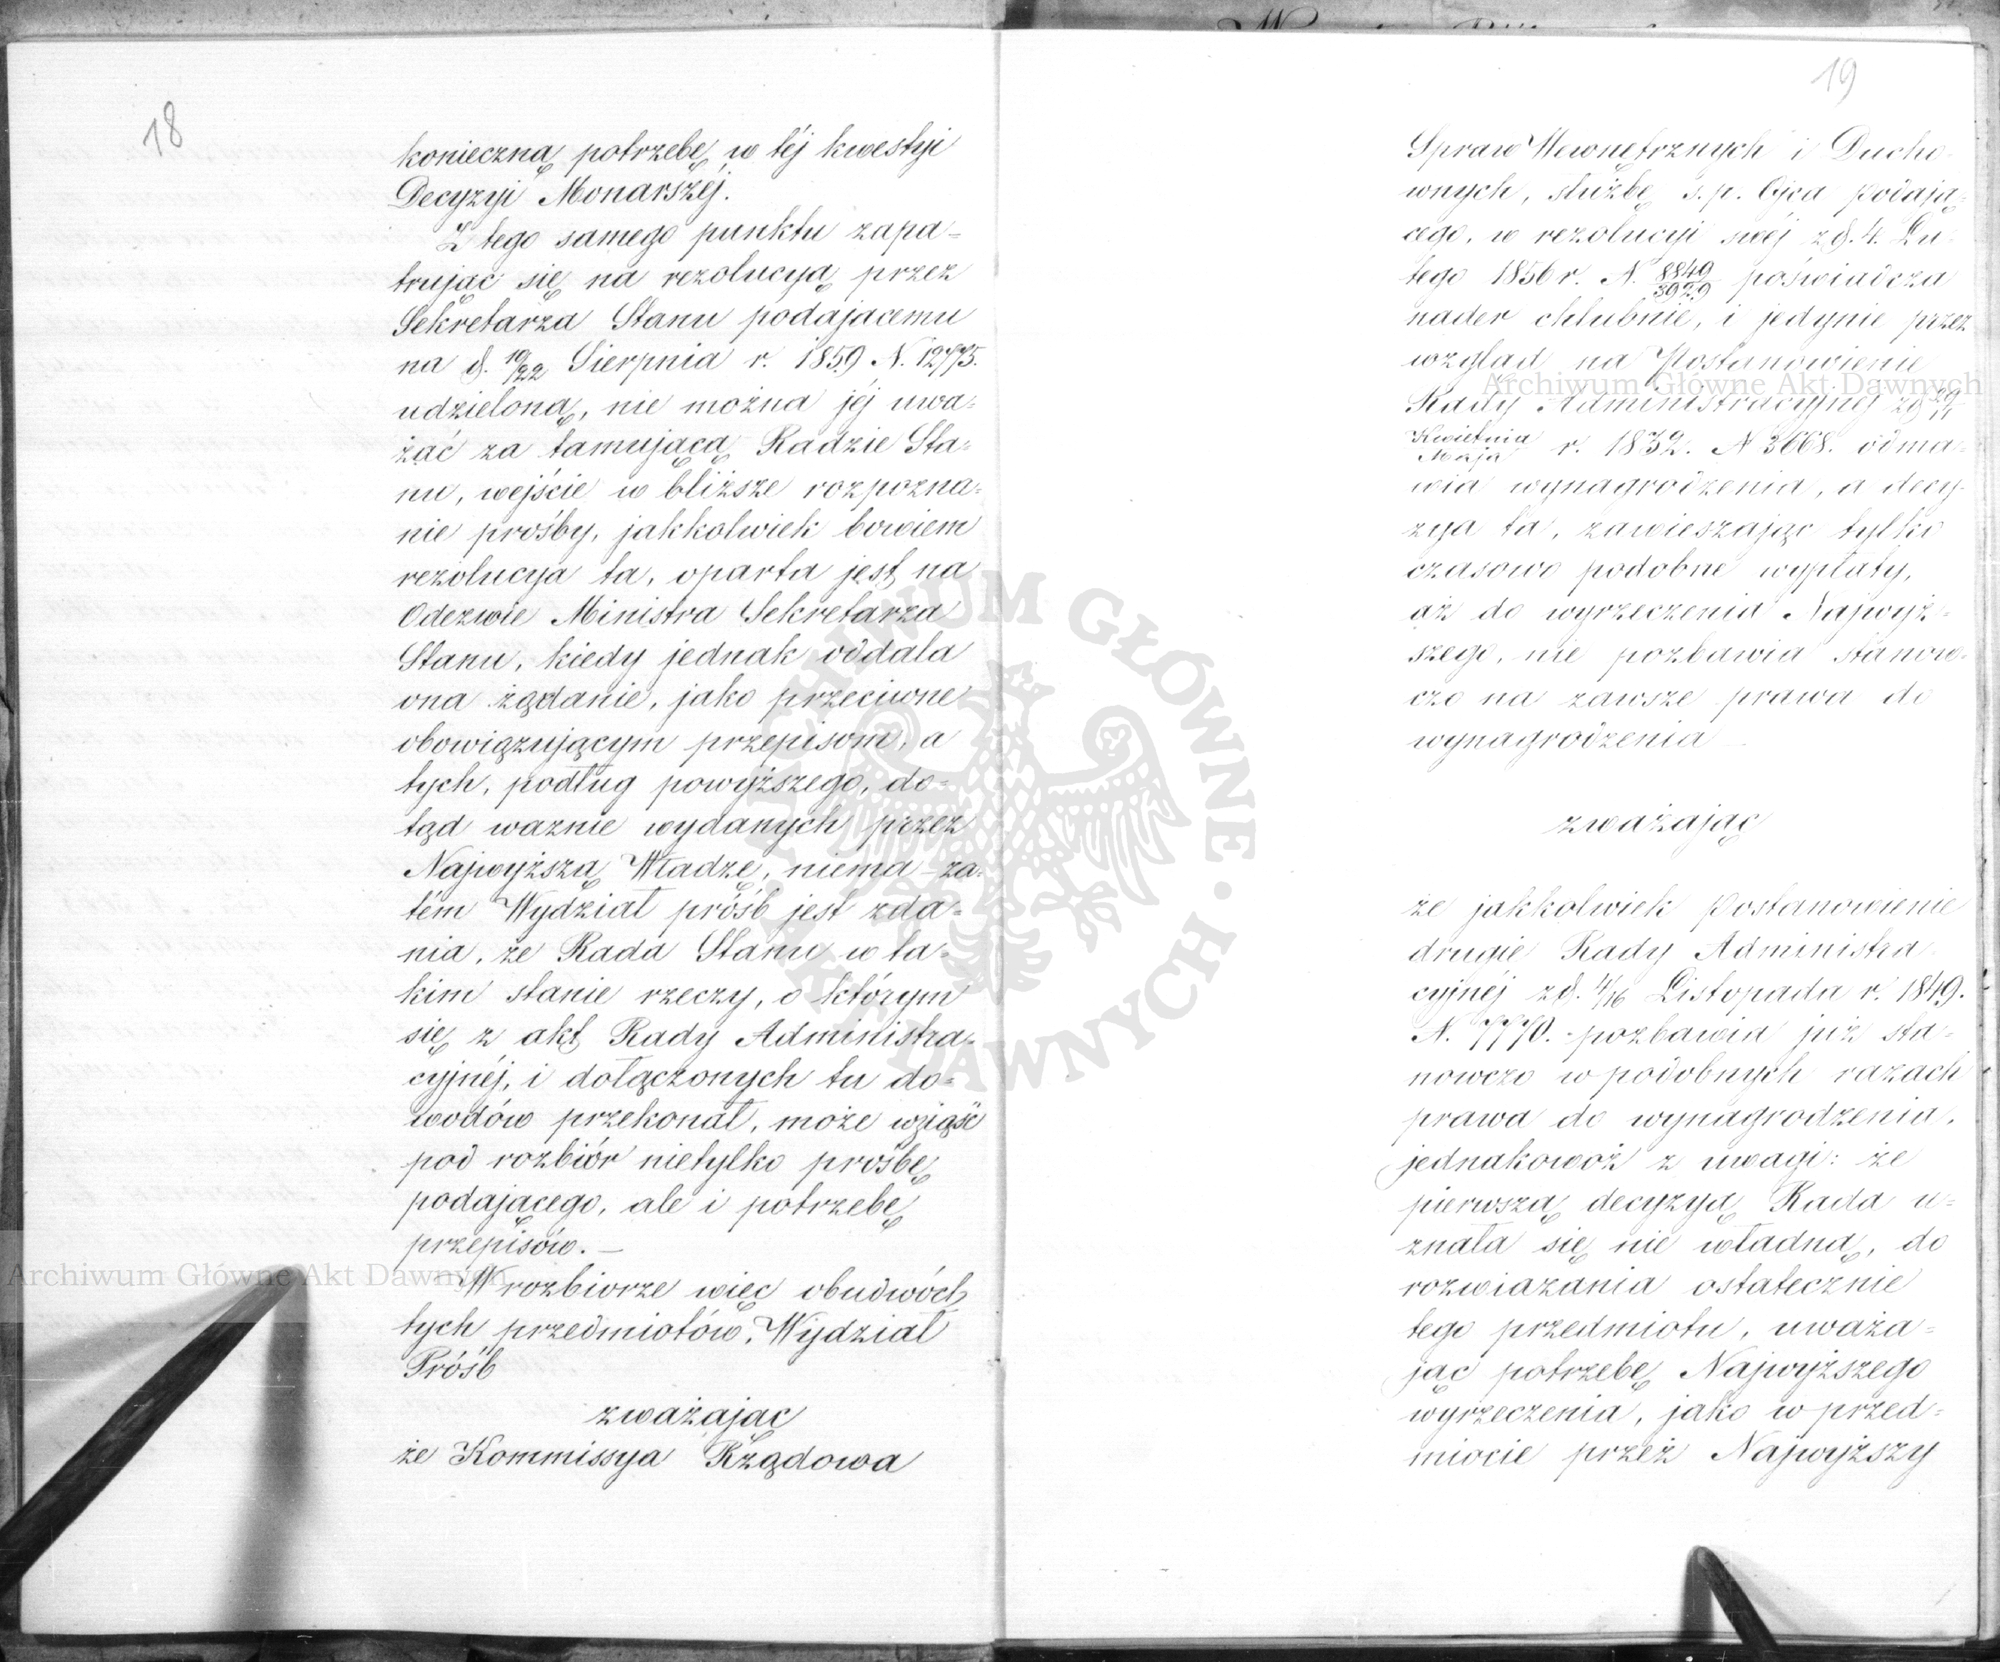 18
konieczną potrzebę w téj kwestyi
Decyzyi Monarszéj.
Z tego samego punktu zapa=
trując się na rezolucyą przez
Sekretarza Stanu podającemu
na d. 10/22 Sierpnia r. 1859 N. 12775.
udzieloną, nie można jéj uwa=
żać za tamującą Radzie Sta=
nu, wejście w bliższe rozpozna=
nie prośby, jakkolwiek bowiem
rezolucya ta, oparta jest na
Odezwie Ministra Sekretarza
Stanu, kiedy jednak oddala
ona żądanie, jako przeciwne
obowiązującym przepisom, a
tych, podług powyższego, do=
tąd ważnie wydanych przez
Najwyższą Władzę, niema – za=
tém Wydział próśb jest zda=
nia, że Rada Stanu w ta=
kim stanie rzeczy, o którym
się z akt Rady Administra=
cyjnéj, i dołączonych tu do=
wodów przekonał, może wziąść
pod rozbiór nietylko prośbę
podającego, ale i potrzebę
przepisów. —
W rozbiorze więc obudwóch
tych przedmiotów, Wydział
Próśb
zważając
że Kommissya Rządowa
19
Spraw Wewnętrznych i Ducho=
wnych, służbę ś. p. Ojca podają=
cego, w rezolucyi swéj z d. 4. Lu=
tego 1856 r. N. 8849/3929 poświadcza
nader chlubnie, i jedynie przez
wzgląd na Postanowienie
Rady Administracyjnéj z d. 29/11
Kwietnia/Maja r. 1832. N 3668. odma=
wia wynagrodzenia, a decy=
zya ta, zawieszając tylko
czasowo podobne wypłaty,
aż do wyrzeczenia Najwyż=
szego, nie pozbawia stanow=
czo na zawsze prawa do
wynagrodzenia —
zważając
że jakkolwiek Postanowienie
drugie Rady Administra=
cyjnéj z d. 4/16 Listopada r. 1849.
N. 7770. – pozbawia już sta=
nowczo w podobnych razach
prawa do wynagrodzenia,
jednakowoż z uwagi: że
pierwszą decyzyą Rada u=
znała się nie władną, do
rozwiązania ostatecznie
tego przedmiotu, uważa=
jąc potrzebę Najwyższego
wyrzeczenia, jako w przed=
miocie przez Najwyższy
Archiwum Główne Akt Dawnych
Archiwum Główne Akt Dawnych
ARCHIWUM GŁÓWNE · AKT DAWNYCH ·